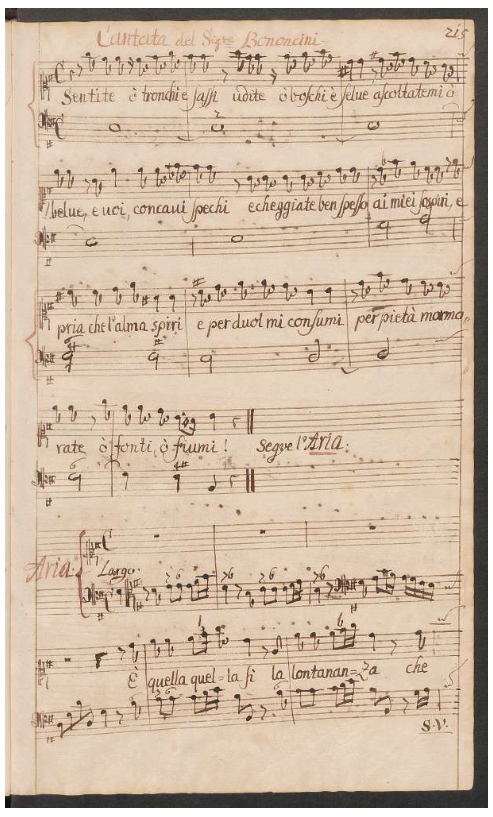 215
Cantata del Sigre Bononcini
Sentite ò tronchi e sassi udite ò boschi è selue ascoltatemi ò
belue, e uoi, concaui spechi echeggiate ben spesso ai miei sospiri, e
pria che l'alma spiri e per duol mi consumi per pietà mormo
rate ò fonti, ò fiumi! Segve l'Aria:
Aria: Largo.
6 6 6 6 6
6
È quella quel-la si la lontanan-za che
S.V.